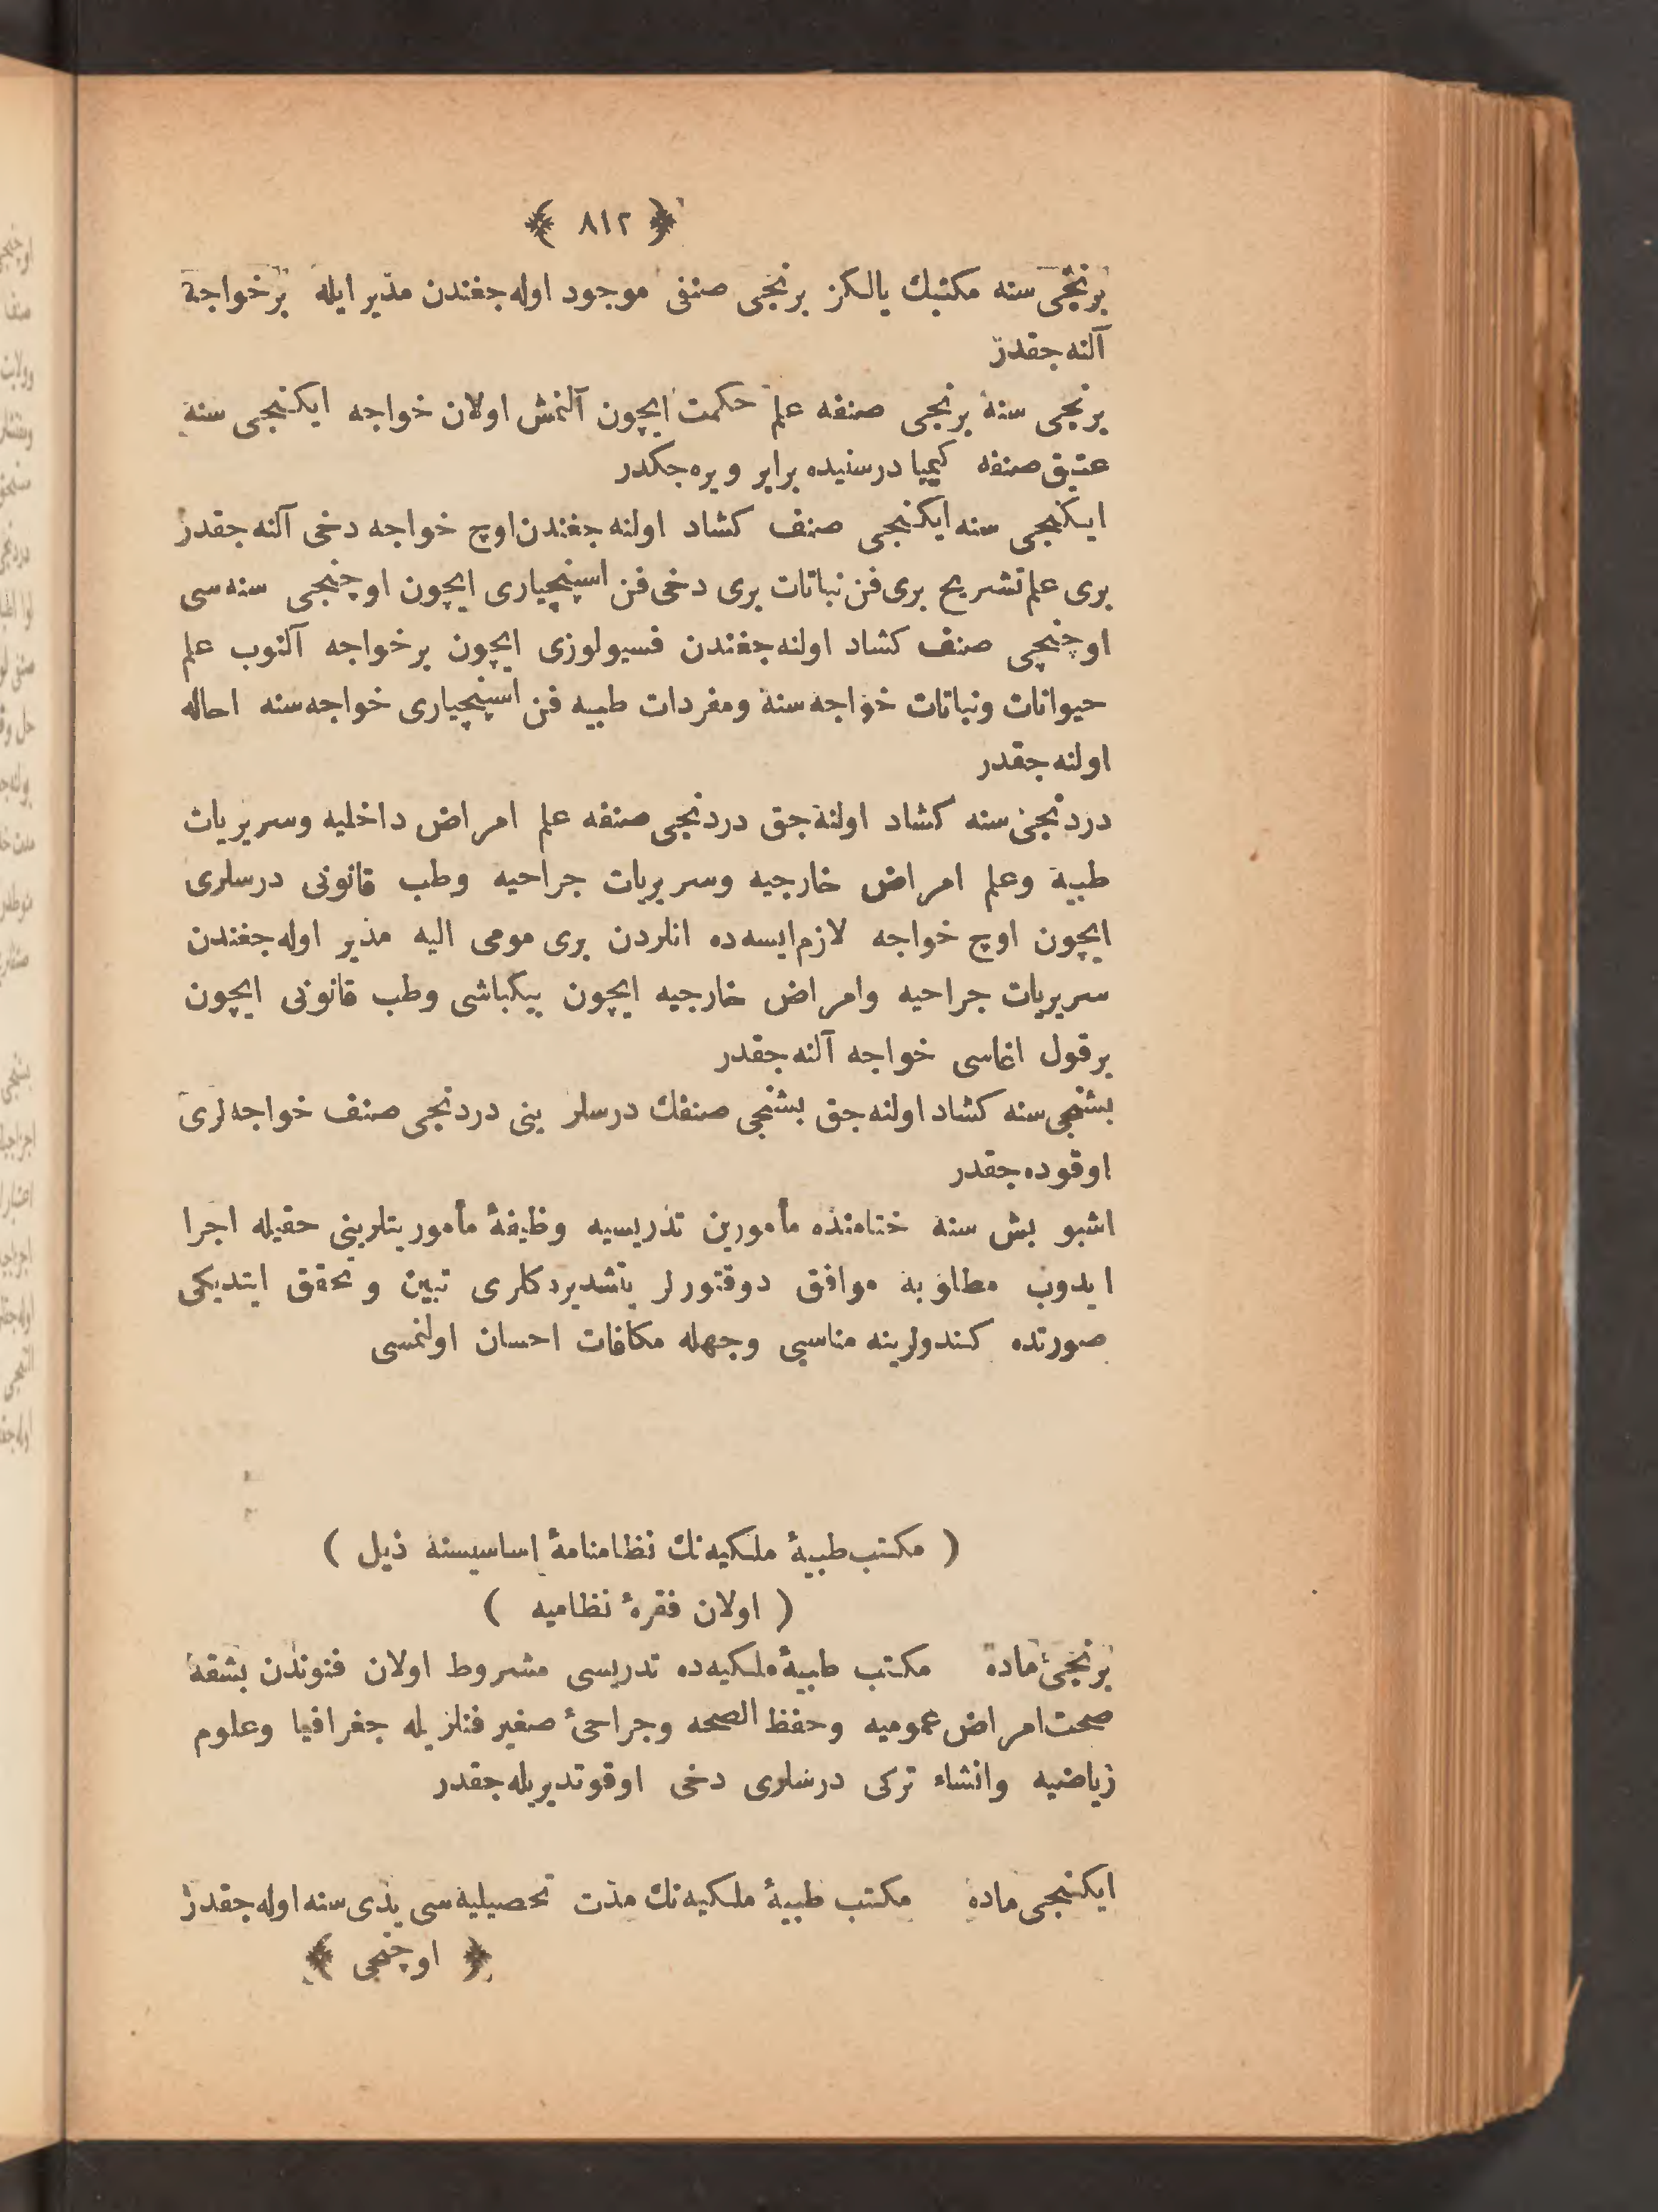 ﴿ ٨١٢ ﴾
برنجی سنه مكتبك يالكز برنجی صنفی موجود اوله‌جغندن مدير ايله برخواجه
آلنه‌جقدر
برنجی سنه برنجی صنفه علم حكمت ايچون آلنمش اولان خواجه ايكنجی سنه
عتيق صنفه كيميا درسنيده برابر ويره‌جكدر
ايكنجی سنه ايكنجی صنف كشاد اولنه‌جغندن اوچ خواجه دخی آلنه‌جقدر
بری علم تشريح بری فن نباتات بری دخی فن اسپنچياری ايچون اوچنجی سنه‌سی
اوچنجی صنف كشاد اولنه‌جغندن فسيولوژی ايچون برخواجه آلنوب علم
حيوانات ونباتات خواجه‌سنه ومفردات طبيه فن اسپنچياری خواجه‌سنه احاله
اولنه‌جقدر
دردنجی سنه كشاد اولنه‌جق دردنجی صنفه علم امراض داخليه وسريريات
طبيه وعلم امراض خارجيه وسريريات جراحيه وطب قانونی درسلری
ايچون اوچ خواجه لازم ايسه‌ده انلردن بری مومی اليه مدير اوله‌جغندن
سريريات جراحيه وامراض خارجيه ايچون بيكباشی وطب قانونی ايچون
برقول اغاسی خواجه آلنه‌جقدر
بشنجی سنه كشاد اولنه‌جق بشنجی صنفك درسلرينی دردنجی صنف خواجه‌لری
اوقوده‌جقدر
اشبو بش سنه ختامنده مأمورين تدريسيه وظيفۀ مأموريتلرينی حقيله اجرا
ايدوب مطلوبه موافق دوقتورلر يتشديردكلری تبين وتحقق ايتديكی
صورتده كندولرينه مناسبی وجهله مكافات احسان اولنمسی
( مكتب طبيۀ ملكيه‌نك نظامنامۀ اساسيسنه ذيل )
( اولان فقرۀ نظاميه )
برنجی ماده مكتب طبيۀ ملكيه‌ده تدريسی مشروط اولان فنوندن بشقه
صحت امراض عموميه وحفظ الصحه وجراحیٔ صغير فنلريله جغرافيا وعلوم
رياضيه وانشاء تركی درسلری دخی اوقوتديريله‌جقدر
ايكنجی ماده مكتب طبيۀ ملكيه‌نك مدت تحصيليه‌سی يدی سنه اوله‌جقدر
﴿ اوچنجی ﴾